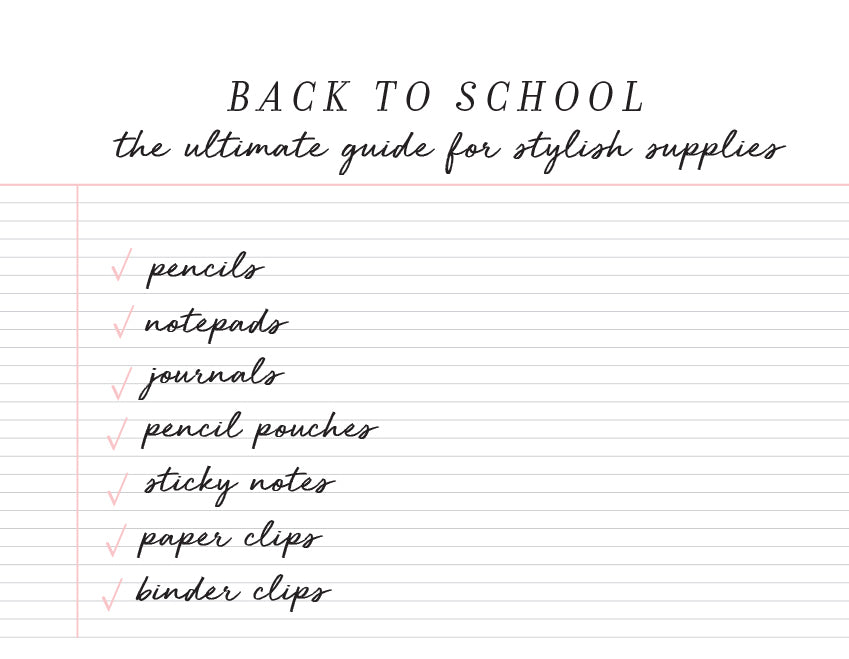 BACK TO SCHOOL
the ultimate guide for stylish supplies
pencils
notepads
journals
pencil pouches
sticky notes
paper clips
binder clips